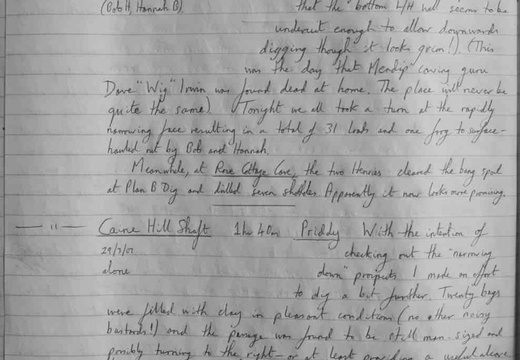 (Bob H, Hannah B) that the "bottom L/H wall seems to be
undercut enough to allow downwards
digging though it looks grim!) (This
was the day that Mendip caving guru
Dave "Wig" Irwin was found dead at home. The place will never be
quite the same) Tonight we all took a turn at the rapidly
narrowing face resulting in a total of 31 loads and one frog to surface -
hauled out by Bob and Hannah.
Meanwhile, at Rose Cottage Cave, the two Henries cleared the bang spoil
at Plan B Dig and drilled seven shotholes. Apparently it now looks more promising.
— 11 — Caine Hill Shaft 1h 40m Priddy With the intention of
29/7/07 checking out the "narrowing
alone down" prospects I made an effort
to dig a bit further. Twenty bags
were filled with clay in pleasant conditions (no other noisy
bastards!) and the passage was found to be still man-sized and
possibly turning to the right - or at least providing a useful alcove